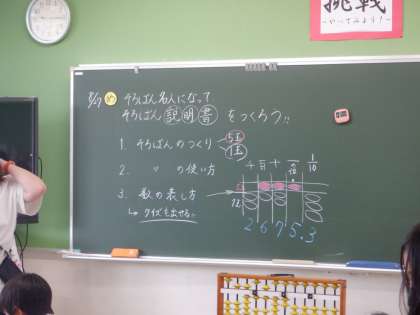 挑戦
～やってみよう！～
めそろばん名人になって
そろばん説明書をつくろう!!
1. そろばんのつくり 5玉
1玉
2. 〃 の使い方
3. 数の表し方
↳クイズも出せる。
1/10
2675.3